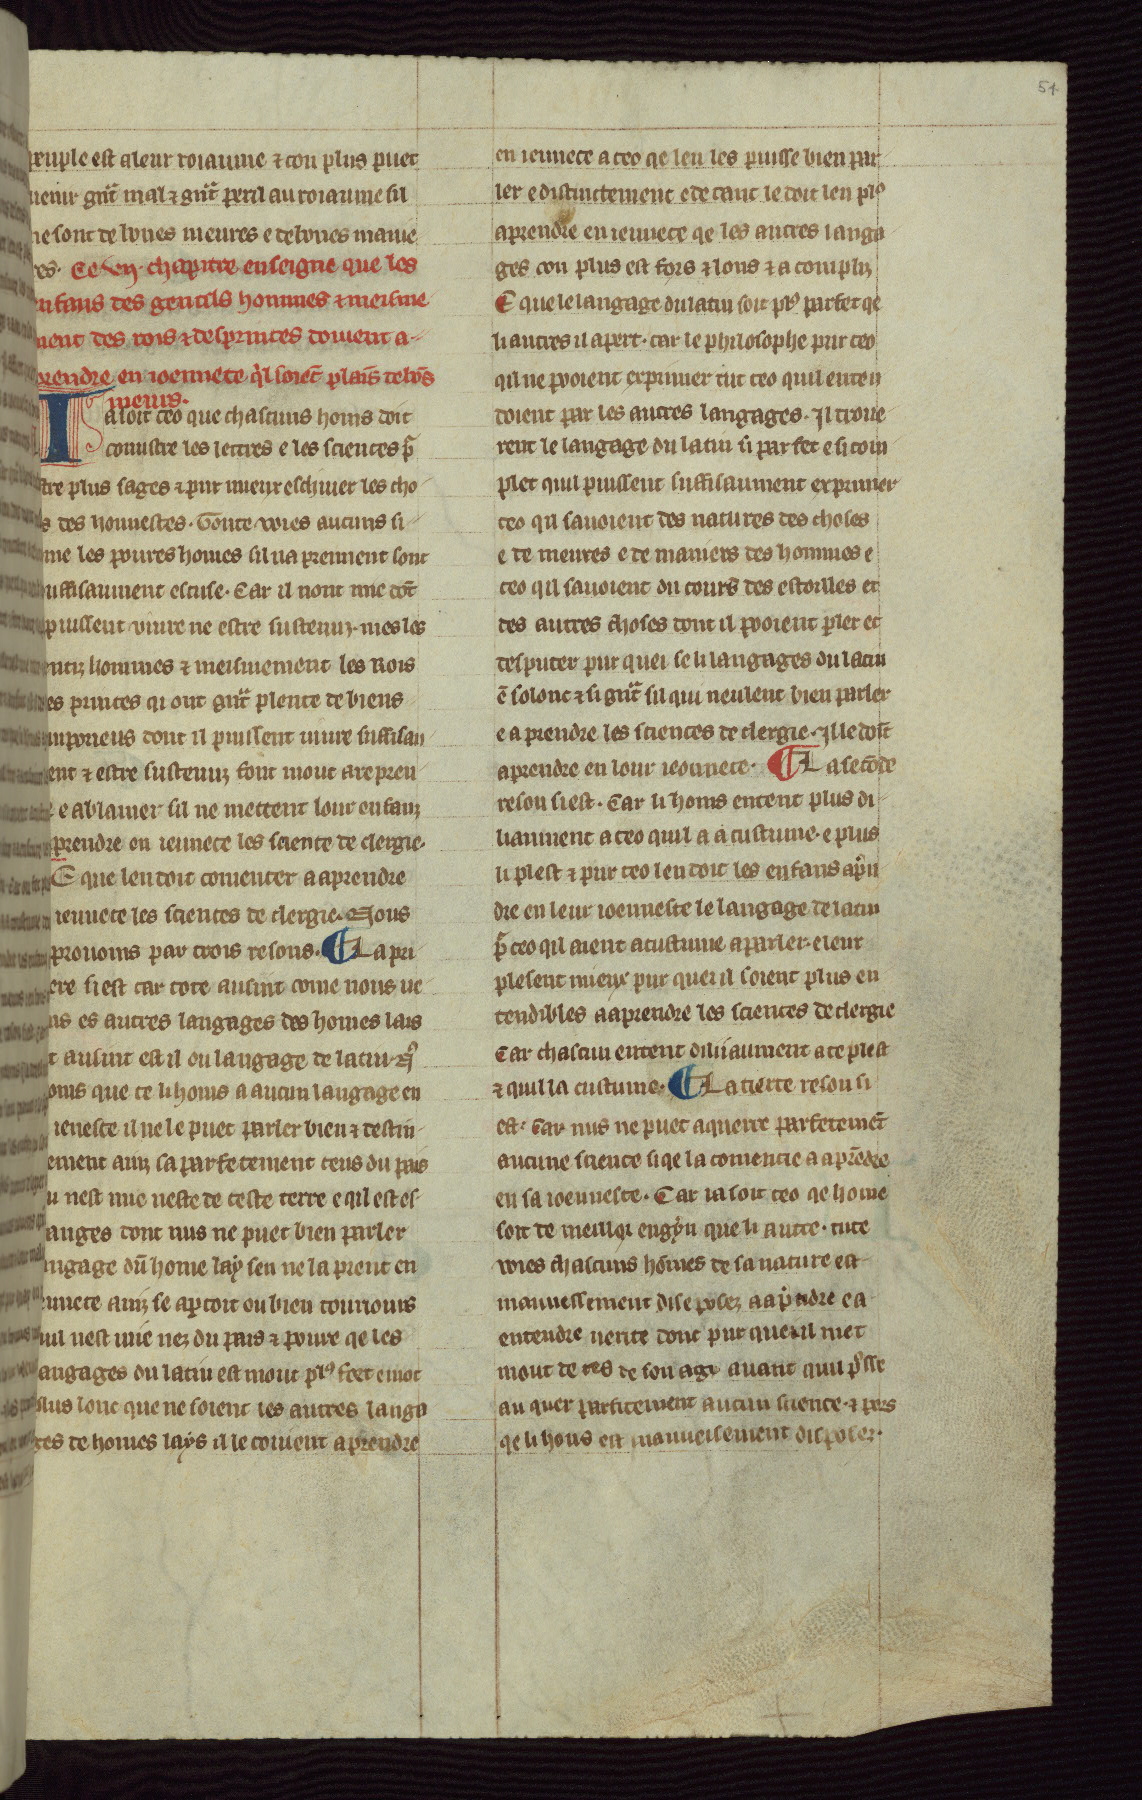 51
peuple est a leur roiaume ⁊ con plus puet
uenir gnt̃ mal ⁊ gnt̃ peril au roiaume sil
ne sont de bones meures e de bones manie
res. Ce .vij. chapitre enseigne que les
enfans des gentils hommes ⁊ meisme
ment des rois ⁊ des princes doiuent a-
prendre en ioennece q̃l soiẽt plains de bõs
meurs.
Ia soit ceo que chascuns homs doit
conustre les lettres e les sciences p̃
estre plus sages ⁊ pur mieuz eschiuer les cho
s des honnestes. Toute voies aucuns si
me les poures homes sil na prennent sont
suffisaument escuse. Car il nont mie dõt
puissent viure ne estre sustenuz. mes les
entiz hommes ⁊ meismement les Rois
es princes qi ont gnt̃ plente de biens
mporieus dont il puissent uiure suffisau
ent ⁊ estre sustenuz font mout a repren
e a blamer sil ne mettent lour enfanz
prendre en iennece les science de clergie.
E que len doit comencer a aprendre
iennece les sciences de clergie. Nous
prouoms par trois resons. La pri
ere si est car tote ausint come nous ue
ns es autres langages des homes lais
t ausint est il ou langage de latin.
oms que ce li homs a aucun langage en
ieneste il ne le puet parler bien ⁊ destin-
ement auz sa parfetement ceus du pais
u nest mie neste de ceste terre e qil est es-
anges dont nus ne puet bien parler
angage dũ home lay sen ne la prent en
ennece anz se apercoit ou bien connoins
uil nest mie nez du pais ⁊ poure qe les
angages du latin est mout pl9 fort e mot
plus lonc que ne soient les autres langa
ges de homes lays il le couient aprendre
en iennece a ceo qe len les puisse bien par
ler e distinctement e de tant le doit len pl9
aprendre en iennece qe les autres langa
ges con plus est fors ⁊ lons ⁊ a compliz
E que le langage du latin soit pl9 parfet qe
li autres il apert. car le philosophe pur ceo
qil ne pooient exprimer tut ceo quil enten
doient par les autres langages. Il troue
rent le langage du latin si parfet e si com
plet quil puissent suffisaument exprimer
ceo qil sauoient des natures des choses
e de meures e de maniers des hommes e
ceo qil sauoient du cours des estoilles et
des autres choses dont il pooient plet et
desputer pur quei se li langages du latin
ẽ solonc ⁊ si gnt̃ sil qui neulent bien parler
e aprendre les sciences de clergie. Il le doit
aprendre en lour ieonnece. La secõde
reson si est. Car li homs entent plus di
lianment a ceo quil a acustume. e plus
li plest ⁊ pur ceo len doit les enfans apñ
dre en leur ioenneste le langage de latin
p̃ ceo qil aient acustume a parler. e leur
plesent mieux pur quei il soient plus en
tendibles a aprendre les sciences de clergie
Car chascun entent diliiaument a ce plest
⁊ quil la custume. La tierte reson si
est. Car nus ne puet aquerre parfetemẽt
aucune science si qe la comencie a aprẽdre
en sa ioenneste. Car ia soit ceo qe home
soit de meillor engyn que li autre. tute
voies chascuns homes de sa nature est
mauuessement dise posez a aprendre e a
entendre uerite dont pur quei il met
mout de tes de son age auant quil p9sse
au quer parfitement aucun science. ⁊ pus
qe li hons est mauueisement disposez.